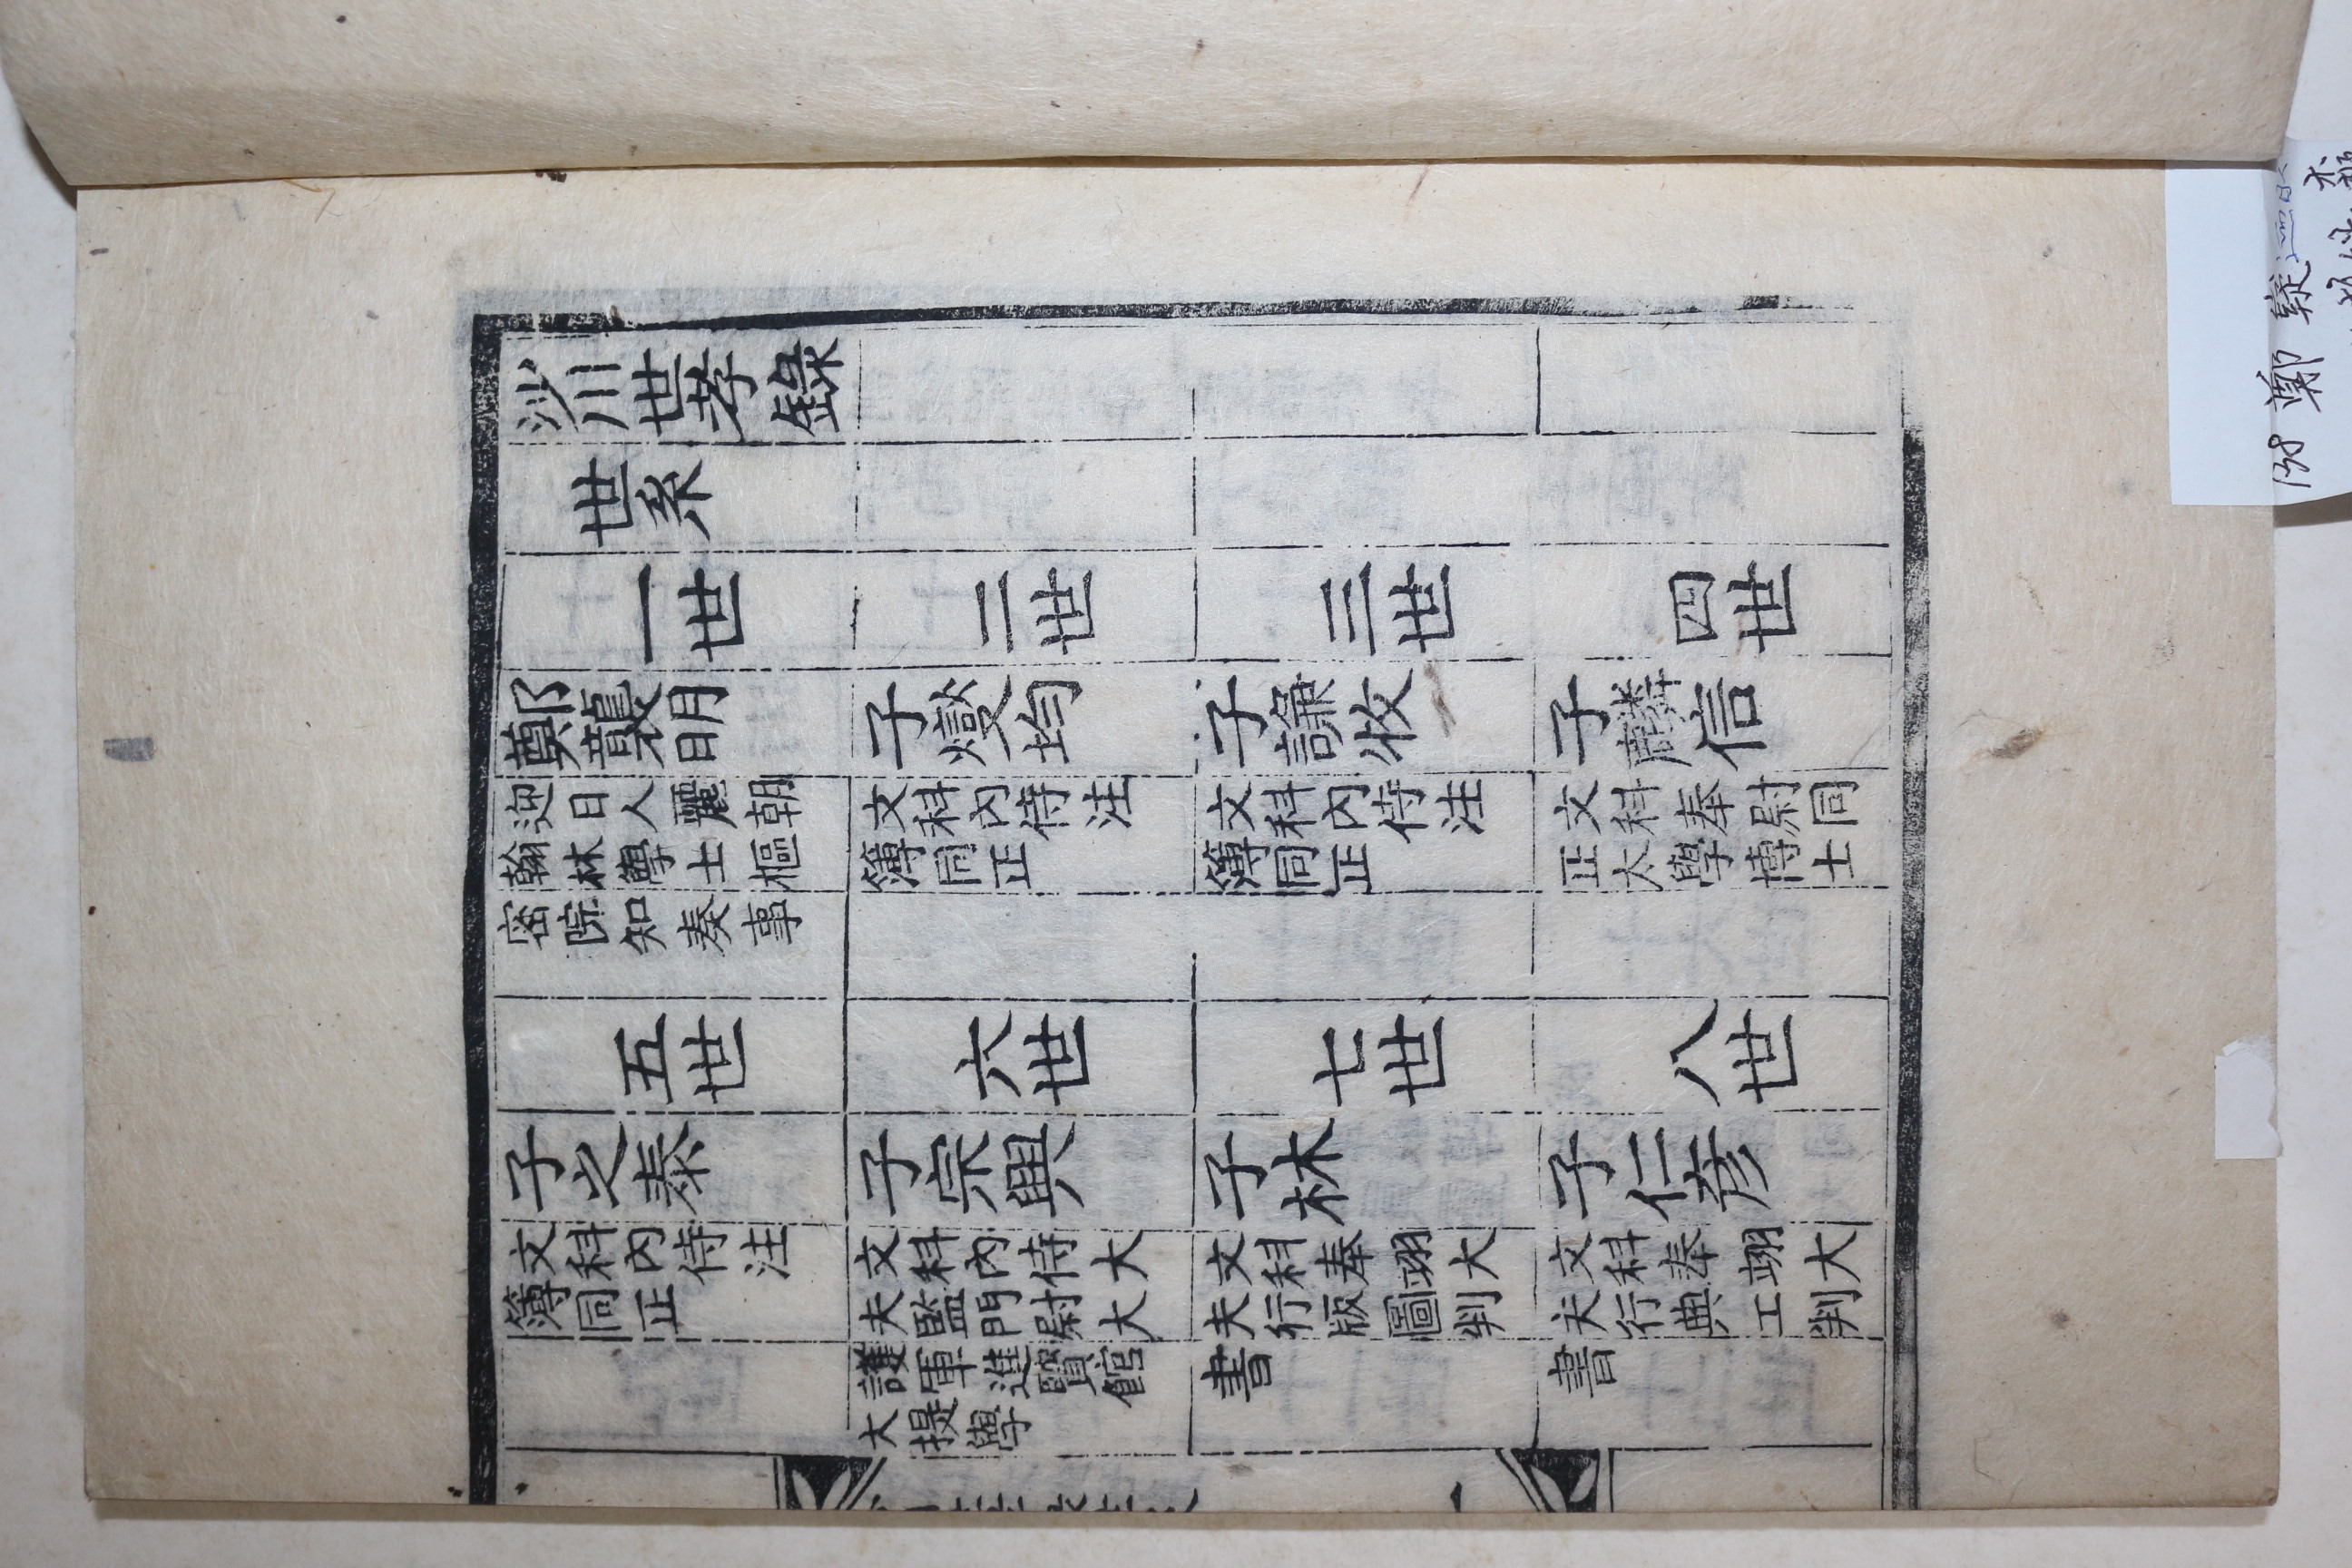 沙川世孝錄
世系
一世
二世
三世
四世
鄭襲明
子燮均
子謙牧
子麟信
迎日人麗朝
翰林學士樞
密院知奏事
文科內侍注
簿同正
文科內侍注
簿同正
文科奉尉同
正太學博士
五世
六世
七世
八世
子之泰
子宗興
子林
子仁彦
文科內侍注
簿同正
文科內侍大
夫監門尉大
護軍進賢館
大提學
文科奉翊大
夫行版圖判
書
文科奉翊大
夫行典工判
書
138 鄭